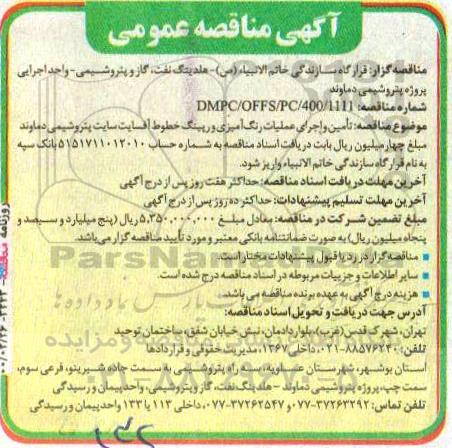 آگهی مناقصه عمومی
مناقصه گزار: قرارگاه سازندگی خاتم الانبیاء (ص) - هلدینگ نفت، گاز و پتروشیمی - واحد اجرایی
پروژه پتروشیمی دماوند
شماره مناقصه: DMPC/OFFS/PC/400/1111
موضوع مناقصه: تأمین و اجرای عملیات رنگ آمیزی و رپینگ خطوط آفسایت سایت پتروشیمی دماوند
مبلغ چهار میلیون ریال بابت دریافت اسناد مناقصه به شماره حساب ۵۱۵۱۷۱۱۰۱۲۰۱۰ بانک سپه
به نام قرارگاه سازندگی خاتم الانبیاء واریز شود.
آخرین مهلت دریافت اسناد مناقصه: حداکثر هفت روز پس از درج آگهی
آخرین مهلت تسلیم پیشنهادات: حداکثر ده روز پس از درج آگهی
مبلغ تضمین شرکت در مناقصه: معادل مبلغ ۵,۳۵۰,۰۰۰,۰۰۰ ریال (پنج میلیارد و سیصد و
پنجاه میلیون ریال) به صورت ضمانتنامه بانکی معتبر و مورد تأیید مناقصه گزار می باشد.
■ مناقصه گزار در رد یا قبول پیشنهادات مختار است.
■ سایر اطلاعات و جزییات مربوطه در اسناد مناقصه درج شده است.
■ هزینه درج آگهی به عهده برنده مناقصه می باشد.
آدرس جهت دریافت و تحویل اسناد مناقصه:
تهران، شهرک قدس (غرب)، بلوار دادمان، نبش خیابان شفق، ساختمان توحید
تلفن: ۸۸۵۷۶۲۴۰-۰۲۱، داخلی ۱۳۶۷، مدیریت حقوقی و قراردادها
استان بوشهر، شهرستان عسلویه، سه راه پتروشیمی به سمت جاده شیرینو، فرعی سوم،
سمت چپ، پروژه پتروشیمی دماوند - هلدینگ نفت، گاز و پتروشیمی، واحد پیمان و رسیدگی
تلفن تماس: ۳۷۲۶۳۲۹۲-۰۷۷ و ۳۷۲۶۲۵۴۷-۰۷۷، داخلی ۱۱۳ یا ۱۳۳ واحد پیمان و رسیدگی
روزنامه